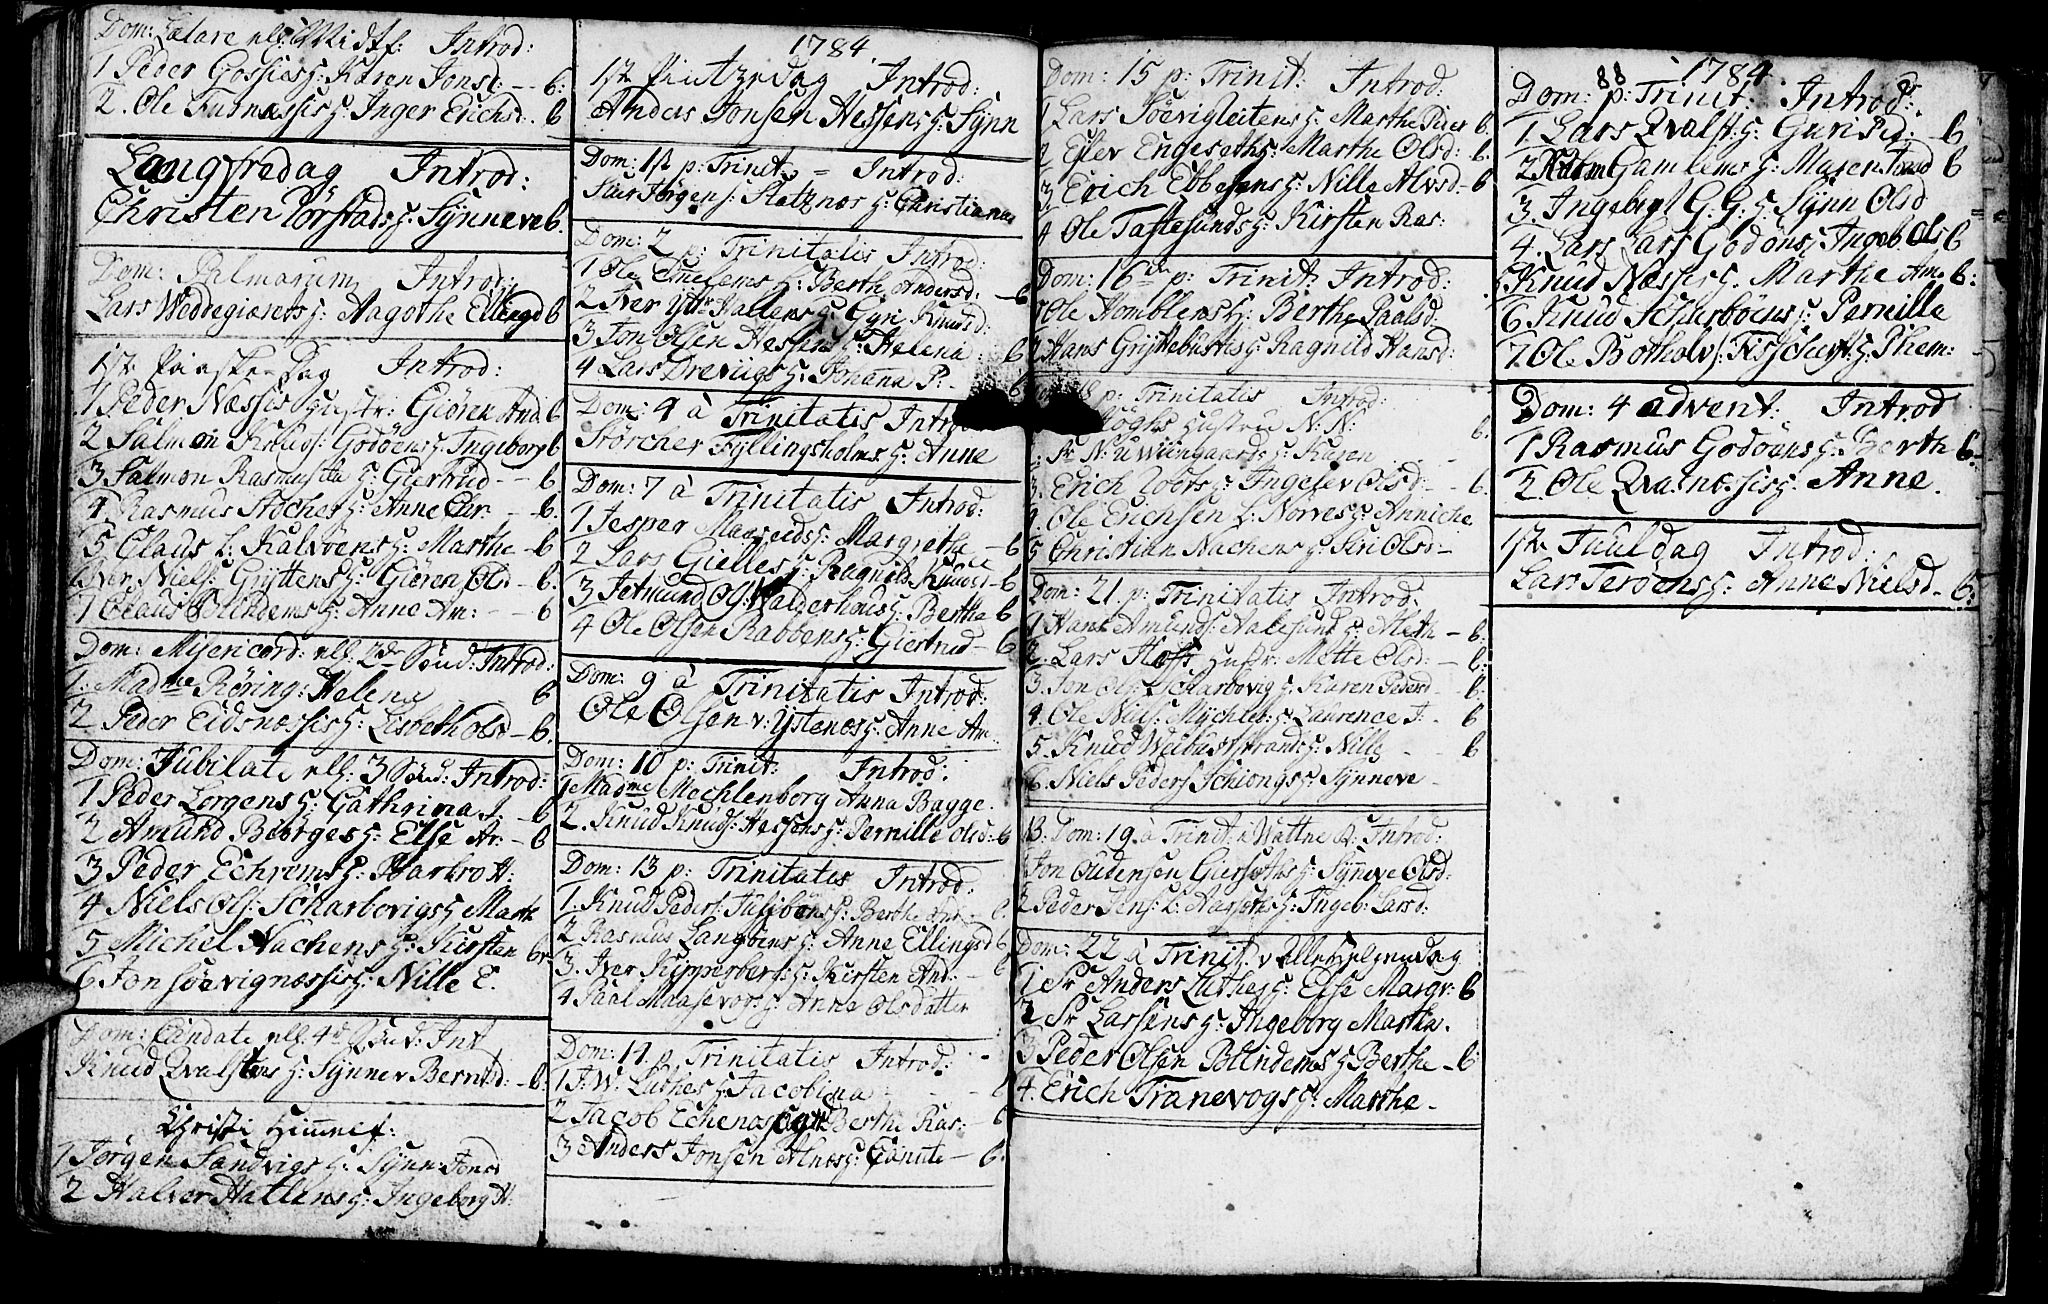 Dom: Lætare ell: Midtf: Introd:
1 Peder Gossies H: Karen Jonsd: - - 6:
2. Ole Furnæssis H: Inger Erichsd: 6
Langfredag Introd:
Christen Rörstads H: Synneve 6.
Dom: Palmarum Introd:
Lars Weddegierets H: Aagothe Ellingsd 6
1ste Paaske-Dag Introd:
1 Peder Næssis Hustr: Giören And 6
2 Salmon Knuds: Godöens H: Ingeborg 6
3 Salmon Rasmus H: Giertrud - - 6
4 Rasmus Stoches H: Anne Chr. - 6.
5 Claus L: Kalvöens H: Marthe - 6
6 Iver Niels: Gryttens H: Giören Olsd - 6.
7 Claus Blindems H: Anne Am: - - 6
Dom: Misericord: ell: 2den Sönd: Introd:
1. Madme Röring: Helena 6
2 Peder Eidsnæssis H: Lisbeth Olsd - 6.
Dom: Jubilate ell: 3 Sönd: Introd:
1 Peder Lorgens H: Cathrina J. - 6
2 Amund Beorges H: Else Ar: - 6
3 Peder Echrems H: Barbro H:
4 Niels Ols: Scharbovigs H Marte
5 Michel Nachens H: Kirsten 6.
6 Jon Söevignæssis H: Nille E.
Dom: Cantate ell: 4de Sönd: Int
Knud Qvalstens H: Synnev Berntsd: - 6.
Christi Himmelf:
1 Jörgen Sandvigs H: Synn: Jonsd
2 Halver Hatlens H: Ingeborg H:
1784.
1ste Pintzedag Introd:
Anders Jonsen Hessens H: Synn
Dom: 1ste p: Trinit: - Introd:
Siur Jörgens: Slatznes H: Christiana
Dom: 2 p: Trinitatis Introd:
1 Ole Emelems H: Berthe Andersd: - 6
2 Iver Ytr Hallens H: Gyri Knudsd:
3 Jon Olsen Hessens H: Helena: 6
4 Lars Drevigs H: Johana P: - 6
Dom: 4 à Trinitatis Introd
Störcher Fyllingsholms H: Anne
Dom: 7 à Trinitatis Introd:
1 Jesper Maaseids: Margrethe - 6
2 Lars Gielles H: Ragnild Knudsd - 6
3 Jetmund Og: Walderhous H: Berthe 6
4 Ole Olsen Rabbens H: Giertrud - 6
Dom: 9 à Trinitatis Introd:
Ole Olsen v: Ystenes H: Anne Am.
Dom: 10 p: Trinit: Introd:
1 Madme Mechlenborg Anna Bagge.
2. Knud Knuds: Hessens H: Pernille Olsd: 6
Dom: 13 p: Trinitatis Introd:
1. Knud Peders: H: Berthe
2 Rasmus Langöens H: Anne Ellingsd 6
3. Iver Kipperbergs: H: Kirsten And: - 6
4 Paal Maasevogs H: Anna Olsdatter
Dom: 14 p Trinitatis Introd:
1 J: W: Luthes H: Jacobina 6
2 Jacob Echenæs Berthe Ras: 6
3 Anders Jonsen Alnes H: Canute - 6.
Dom: 15 p: Trinit: Introd:
1 Lars Söevigleitens H: Marthe Peders 6.
2 Eslev Engeseths: Marthe Olsd: 6.
3 Erich Ebbesens H: Nille Alvsd - 6
4 Ole Taftesunds H: Kirsten Ras:
Dom: 16de p: Trinit: Introd:
1 Ole Homblens H: Berthe Paalsd:
2 Hans Gryttebustes H: Ragnild Hansd:
18 p: Trinitatis Introd:
Hustru N: N: 6.
2. Sr N: Wiingaards H: Karen - -
3. Erich Roers H: Ingelev Olsd: - 6.
4. Ole Erichsen L: Norves H: Anniche
5 Christian Nachens H: Siri Olsd: -
Dom: 21. p: Trinitatis Introd:
1 Hans Amunds: Aalesund H: Meth - 6:
2. Lars Hoffs Hustr: Mette Olsd: - 6:
3. Jon Ols: Scharbovig H: Karen Pedersd - 6:
4. Ole Niels: Mychleb: H: Laurence J: - 6
5. Knud Weibustrands H: Nille - - 6
6. Niels Peders Schiongs H: Synneve -
13. Dom: 19 à Trinit: i Wattne K: Introd:
1 Jon Oudensen Giersæths H: Synneve Olsd:
2 Peder Jens: L: Aarsæths H: Ingeb: Larsd:
Dom: 22 à Trinit: v: Allehelgensdag
1 Sr Anders Luthes H: Else Margr: 6
2 Sr Larsens H: Ingeborg Martha.
3 Peder Olsen Blindems H Berthe - 6:
4. Erich Tranevogs H: Marthe -
88 1784.
Dom: p: Trinit: Introd:
1 Lars Qvalst: H: Guri Ped: - 6
2 Gamlems H: Maren Tred 6
3. Ingebrgt G: G: H: Synn Olsd
4. Lars Lars Godöens Ingeb Ols 6
5 Knud Næssis H: Marthe Am: 6:
6 Knud Scharböens H: Pernille
7. Ole Botholvs: Fisscherst: H: Them: -
Dom: 4 advent: Introd
1 Rasmus Godöens H: Berth 6.
2 Ole Qvasnessis H: Anne.
1ste Juuldag Introd:
Lars Teröens H: Anne Nielsd - 6: